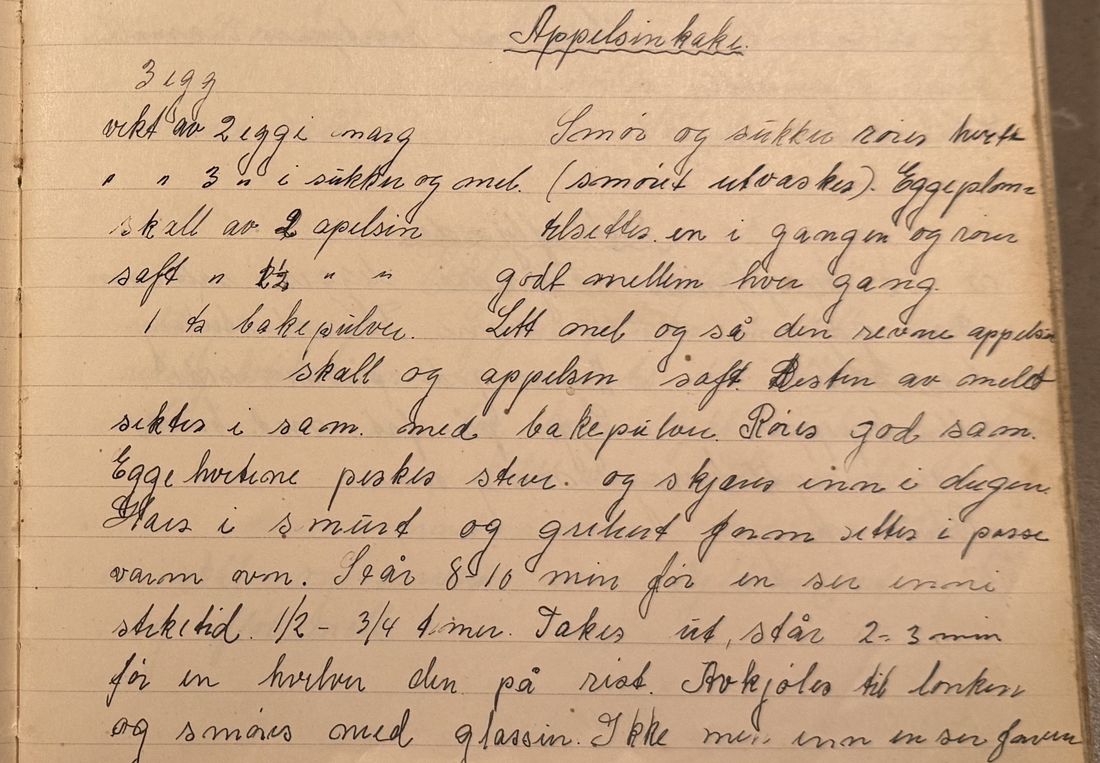 Appelsinkake.
3 egg
vekt av 2 egg i marg Smør og sukker røres hvitt
" " 3 " i sukker og mel. (smøret utvaskes). Eggeplom=
skall av 2 apelsin tilsettes en i gangen og rører
saft " " " godt mellem hver gang.
1 ts bakepulver. Litt mel og så den revne appelsin
skall og appelsin saft Resten av melet
siktes i sam. med bakepulver. Røres god sam.
Eggehvitene piskes stive. og skjæres inn i deigen
Haes i smurt og griljert form settes i passe
varm ovn. Står 8-10 min før en ser inni
steketid. 1/2 - 3/4 timer. Takes ut, står 2-3 min
før en hvelver den på rist. Avkjøles til lunken
og smøres med glassur. Ikke mer enn en ser farven